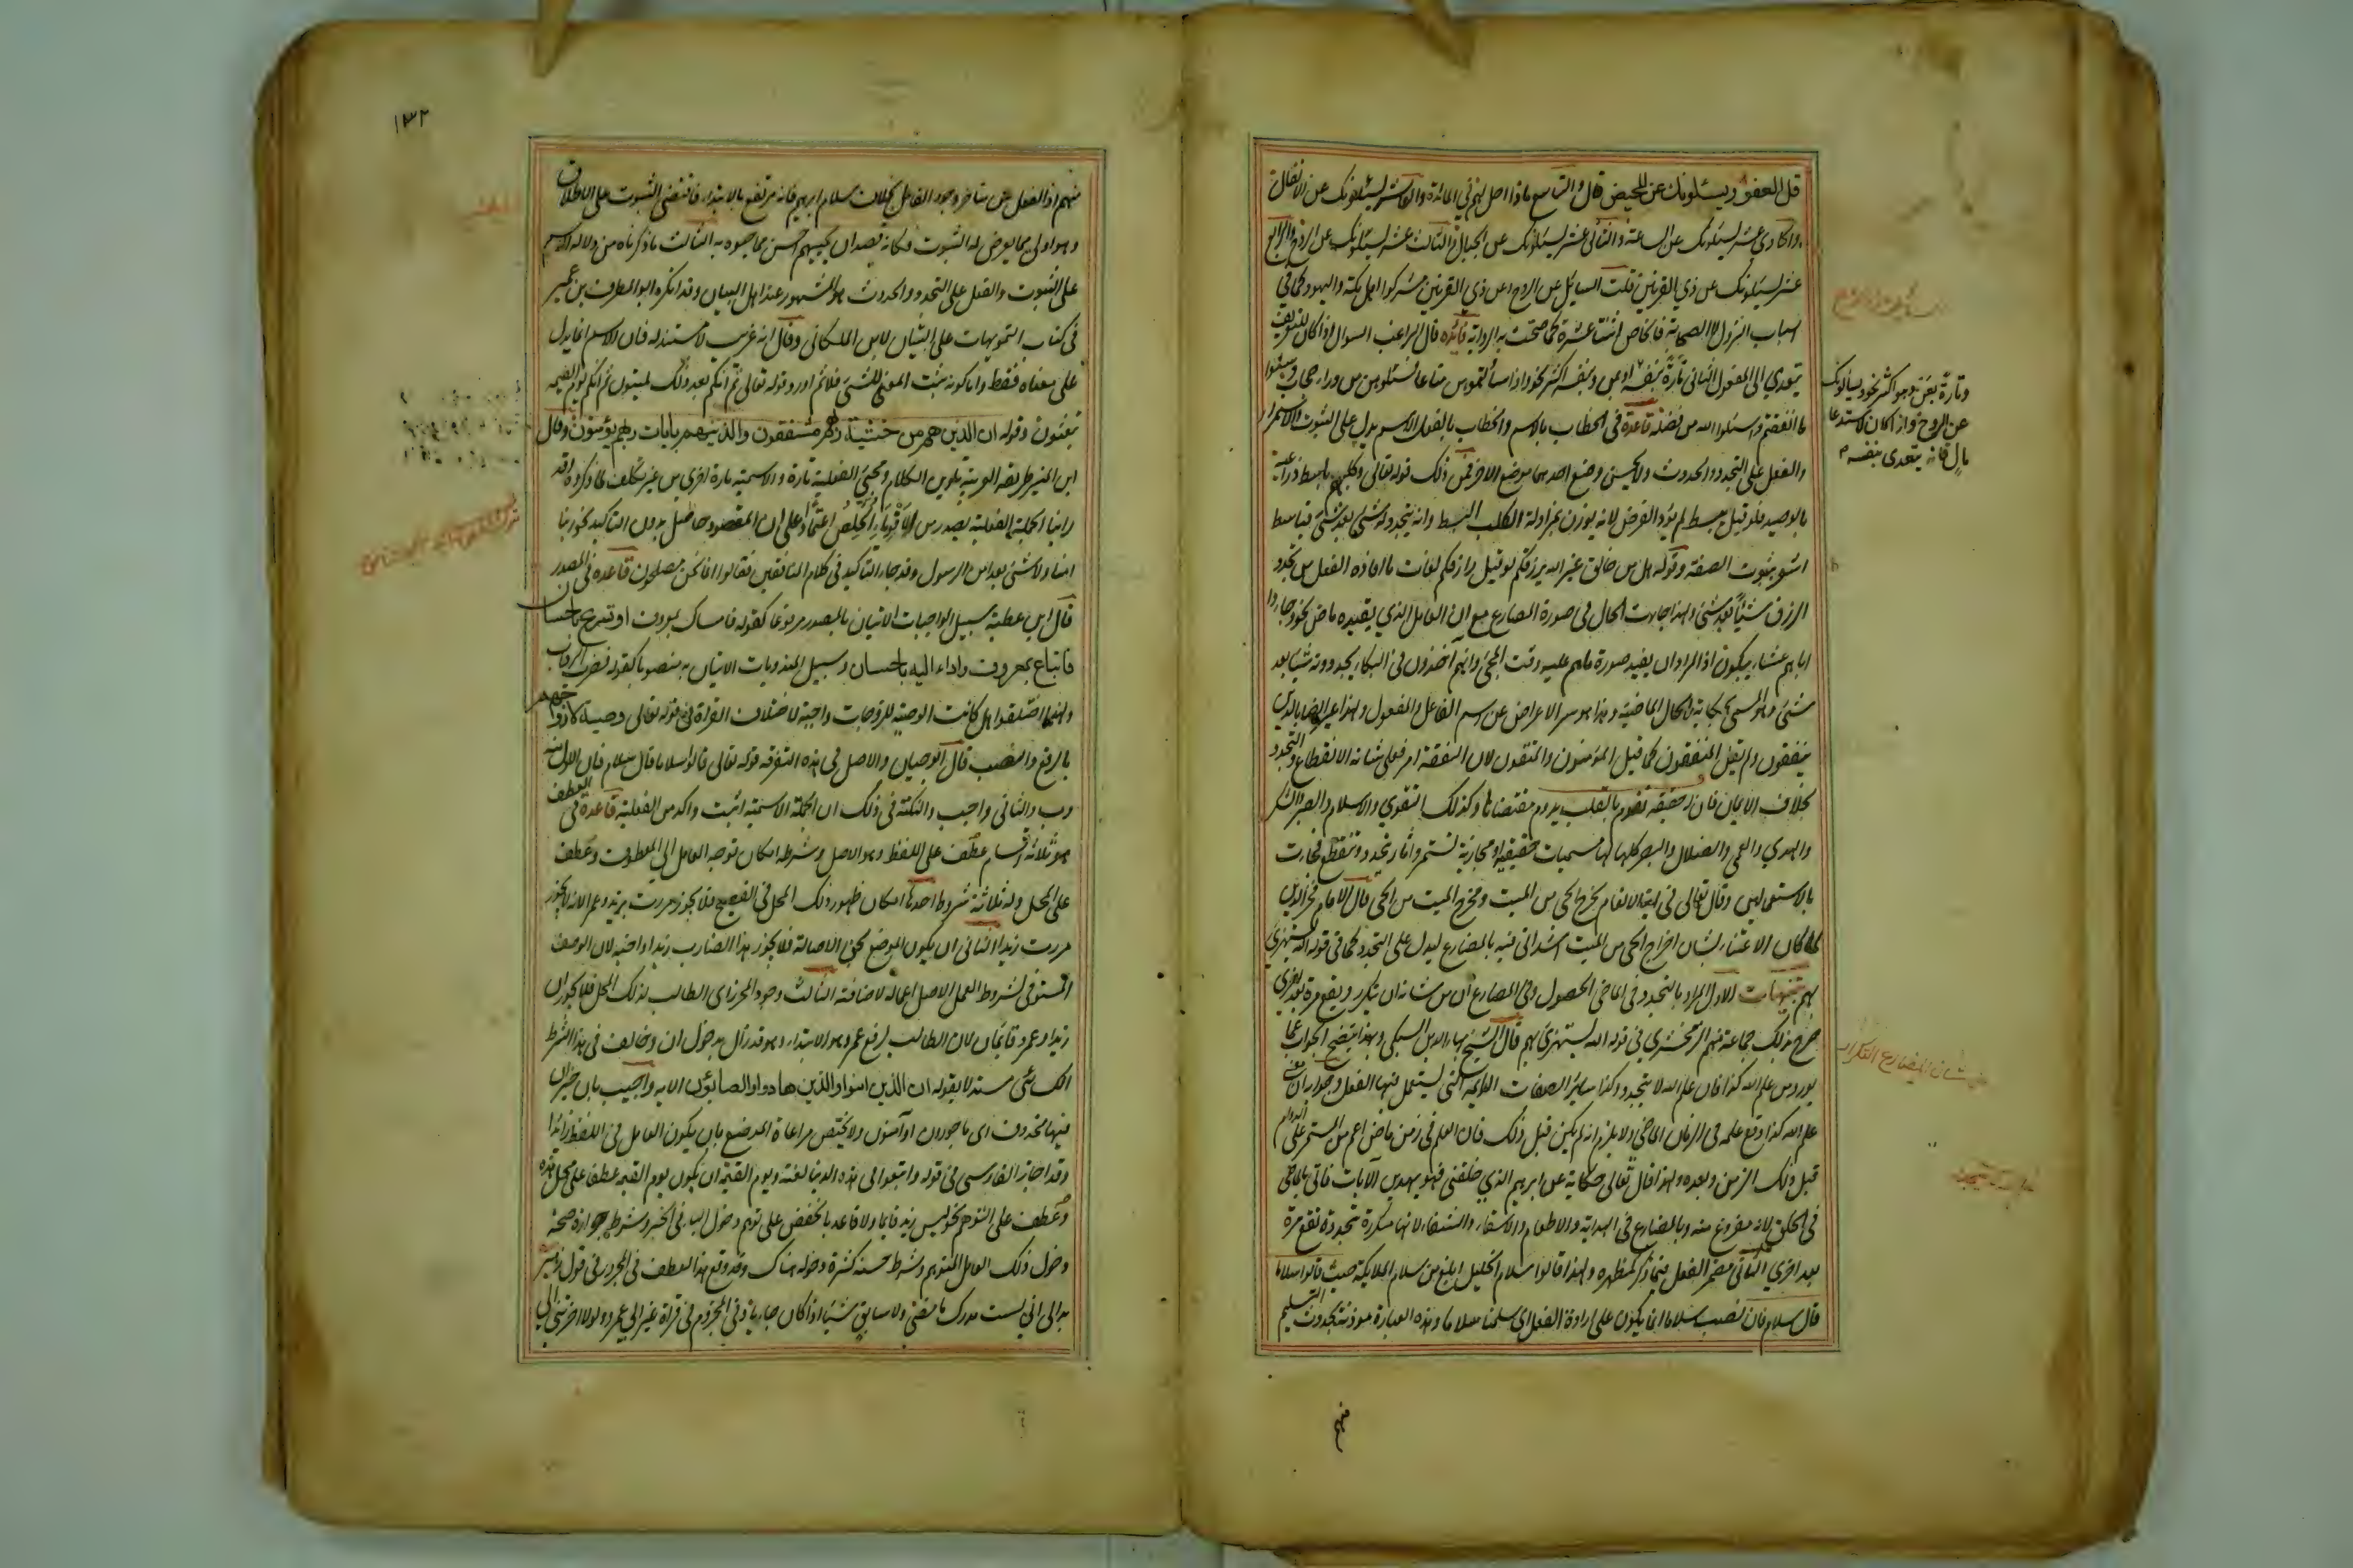 قل العفو ويسئلونك عن المحيض قال والتاسع ماذا احل لهم في المائدة والعاشر يسئلونك عن الانفال
والحادي عشر يسئلونك عن الساعة والثاني عشر يسئلونك عن الجبال والثالث عشر يسئلونك عن الروح والرابع
عشر يسئلونك عن ذي القرنين قلت السائل عن الروح وعن ذي القرنين مشركوا اهل مكة واليهود كما في
اسباب النزول لا الصحابة فالخاص اثنتا عشرة كما صحت به الرواية فائدة قال الراغب السوال اذا كان للتعريف
تعدي الى المفعول الثاني تارة بنفسه وبعن وبنفسه اكثر نحو واذا سألتموهن متاعا فاسئلوهن من وراء حجاب وسئلوا
ما انفقتم واسئلوا الله من فضله قاعدة في الخطاب بالاسم والخطاب بالفعل الاسم يدل على الثبوت والاستمرار
والفعل على التجدد والحدوث ولا يحسن وضع احدهما موضع الاخر فمن ذلك قوله تعالى وكلبهم باسط ذراعيه
بالوصيد فلو قيل يبسط لم يؤد الغرض لانه يوذن بمزاولة الكلب البسط وانه يتجدد له شئ بعد شئ فباسط
اشعر بثبوت الصفة وقوله هل من خالق غير الله يرزقكم لو قيل رازقكم لفات ما افاده الفعل من تجدد
الرزق شيئا بعد شئ ولهذا جاءت الحال في صورة المضارع مع ان العامل الذي يفيده ماض نحو وجاءوا
اباهم عشاء يبكون اذ المراد ان يفيد صورة ما هم عليه وقت المجئ وانهم آخذون في البكاء يجددونه شيئا بعد
شئ وهو المسمى حكاية الحال الماضية وهذا هو سر الاعراض عن اسم الفاعل والمفعول ولهذا عبر ايضا بالذين
ينفقون ولم يقل المنفقون كما قيل المؤمنون والمتقون لان النفقة امر فعلي شانه الانقطاع والتجدد
بخلاف الايمان فان له حقيقة تقوم بالقلب يدوم مقتضاها وكذلك التقوي والاسلام والصبر والشكر
والهدي والعمي والضلال والبصر كلها لها مسميات حقيقية او مجازية تستمر وآثار تتجدد وتنقطع فجاءت
بالاستعمالين وقال تعالى في اية الانعام يخرج الحي من الميت ومخرج الميت من الحي قال الامام فخر الدين
لما كان الاعتناء بشان اخراج الحي من الميت اشد اتي فيه بالمضارع ليدل على التجدد كما في قوله الله يستهزئ
بهم تنبيهات الاول المراد بالتجدد في الماضي الحصول وفي المضارع ان من شانه ان يتكرر ويقع مرة بعد اخري
صرح بذلك جماعة منهم الزمخشري في قوله الله يستهزئ بهم قال الشيخ بهاء الدين السبكي وبهذا يتضح الجواب عما
يورد من علم الله كذا فان علم الله لا يتجدد وكذا سائر الصفات الدائمة التي يستعمل فيها الفعل وجوابه ان معني
علم الله كذا وقع علمه في الزمان الماضي ولا يلزم انه لم يكن قبل ذلك فان العلم في زمن ماض اعم من المستمر على الدوام
قبل ذلك الزمن وبعده ولهذا قال تعالى حكاية عن ابرهيم الذي خلقني فهو يهدين الآيات فاتى بالماضي
في الخلق لانه مفروغ منه وبالمضارع في الهداية والاطعام والاسقاء والشفاء لانها متكررة متجددة تقع مرة
بعد اخري الثاني مضمر الفعل فيما ذكر كمظهره ولهذا قالوا سلام الخليل ابلغ من سلام الملايكة حيث قالوا سلاما
قال سلام فان نصب سلاما انما يكون على ارادة الفعل اي سلمنا سلاما وهذه العبارة موذنة بحدوث التسليم
منهم
وتارة بعن وهو اكثر نحو ويسألونك
عن الروح واذا كان لاستدعا
مال فانه يتعدى بنفسه
١٣٢
منهم اذ الفعل متاخر وجود الفاعل بخلاف سلام ابرهيم فانه مرتفع بالابتداء فاقتضى الثبوت على الاطلاق
وهو اولي مما يعرض له الثبوت فكانه قصد ان يحييهم باحسن مما حيوه به الثالث ما ذكرناه من دلالة الاسم
على الثبوت والفعل على التجدد والحدوث هو المشهور عند اهل البيان وقد انكره ابو المطرف بن عمير
في كتاب التمويهات على التبيان لابن الزملكاني وقال انه غريب لا مستند له فان الاسم انما يدل
على معناه فقط واما كونه يثبت المعنى للشئ فلا ثم اورد قوله تعالى ثم انكم بعد ذلك لميتون ثم انكم يوم القيمة
تبعثون وقوله ان الذين هم من خشية ربهم مشفقون والذين هم بايات ربهم يؤمنون وقال
ابن المنير طريقة العربية تلوين الكلام ومجئ الفعلية تارة والاسمية تارة اخري من غير تكلف لما ذكروه وقد
راينا الجملة الفعلية تصدر من الاقوياء الخلص اعتمادا على ان المقصود حاصل بدون التاكيد نحو ربنا
امنا ولا شئ بعد امن الرسول وقد جاء التاكيد في كلام المنافقين فقالوا انما نحن مصلحون قاعدة في المصدر
قال ابن عطية سبيل الواجبات الاتيان بالمصدر مرفوعا كقوله فامساك بمعروف او تسريح باحسان
فاتباع بمعروف واداء اليه باحسان وسبيل المندوبات الاتيان به منصوبا كقوله فضرب الرقاب
ولهذا اختلفوا هل كانت الوصية للزوجات واجبة لاختلاف القراءة في قوله تعالى وصية لازواجهم
بالرفع والنصب قال ابو حيان والاصل في هذه التفرقة قوله تعالى قالوا سلاما قال سلام فان الاول مند
وب والثاني واجب والنكتة في ذلك ان الجملة الاسمية اثبت واكد من الفعلية قاعدة في العطف
هو ثلاثة اقسام عطف على اللفظ وهو الاصل وشرطه امكان توجه العامل الى المعطوف وعطف
على المحل وله ثلاثة شروط احدها امكان ظهور ذلك المحل في الفصيح فلا يجوز مررت بزيد وعمرا لانه لا يجوز
مررت زيدا الثاني ان يكون الموضع بحق الاصالة فلا يجوز هذا الضارب زيدا واخيه لان الوصف
المستوفي لشروط العمل الاصل اعماله لا اضافته الثالث وجود المحرز اي الطالب لذلك المحل فلا يجوز ان
زيدا وعمرو قائمان لان الطالب لرفع عمرو هو الابتداء وهو قد زال بدخول ان وخالف في هذا الشرط
الكسائي مستدلا بقوله ان الذين امنوا والذين هادوا والصابؤن الاية واجيب بان خبر ان
فيها محذوف اي ماجورون او آمنون ولا يختص مراعاة الموضع بان يكون العامل في اللفظ زائدا
وقد اجاز الفارسي في قوله واتبعوا في هذه الدنيا لعنة ويوم القيمة ان يكون يوم القيمة عطفا على محل هذه
وعطف على التوهم نحو ليس زيد قايما ولا قاعد بالخفض على توهم دخول الباء في الخبر وشرط جوازه صحة
دخول ذلك العامل المتوهم وشرط حسنه كثرة دخوله هناك وقد وقع هذا العطف في المجرور في قول زهير
بدا لي اني لست مدرك ما مضى ولا سابق شيئا اذا كان جاييا وفي المجزوم في قراة غير ابي عمرو لولا اخرتني الى